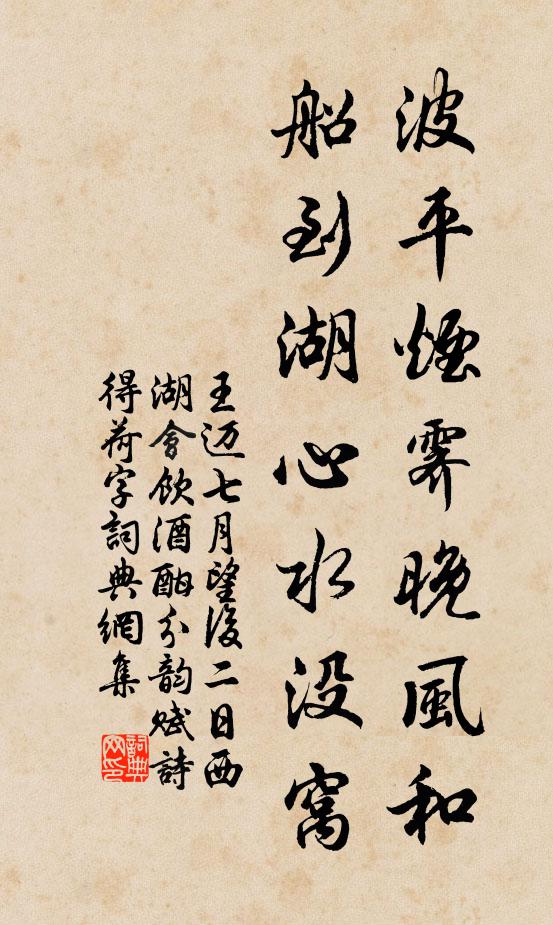 波平煙霽晚風和
船到湖心水没窩
王迈七月望後二日西
湖會飲酒酣分韵赋詩
得荷字詞典網集
詞典网印